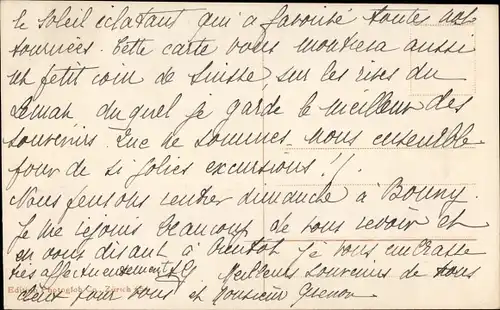 le soleil éclatant qui a favorisé toutes nos
tournées. Cette carte vous montrera aussi
un petit coin de Suisse sur les rives du
Léman duquel je garde le meilleur des
souvenirs. Que ne sommes-nous ensemble
pour de si jolies excursions !!
Nous pensons rentrer dimanche à
Je me rejouis beaucoup de vous revoir et
en vous disant à bientôt je vous embrasse
très affectueusement
Meilleurs souvenirs de tous
deux pour vous et Monsieur
Edition Photoglob Co., Zürich